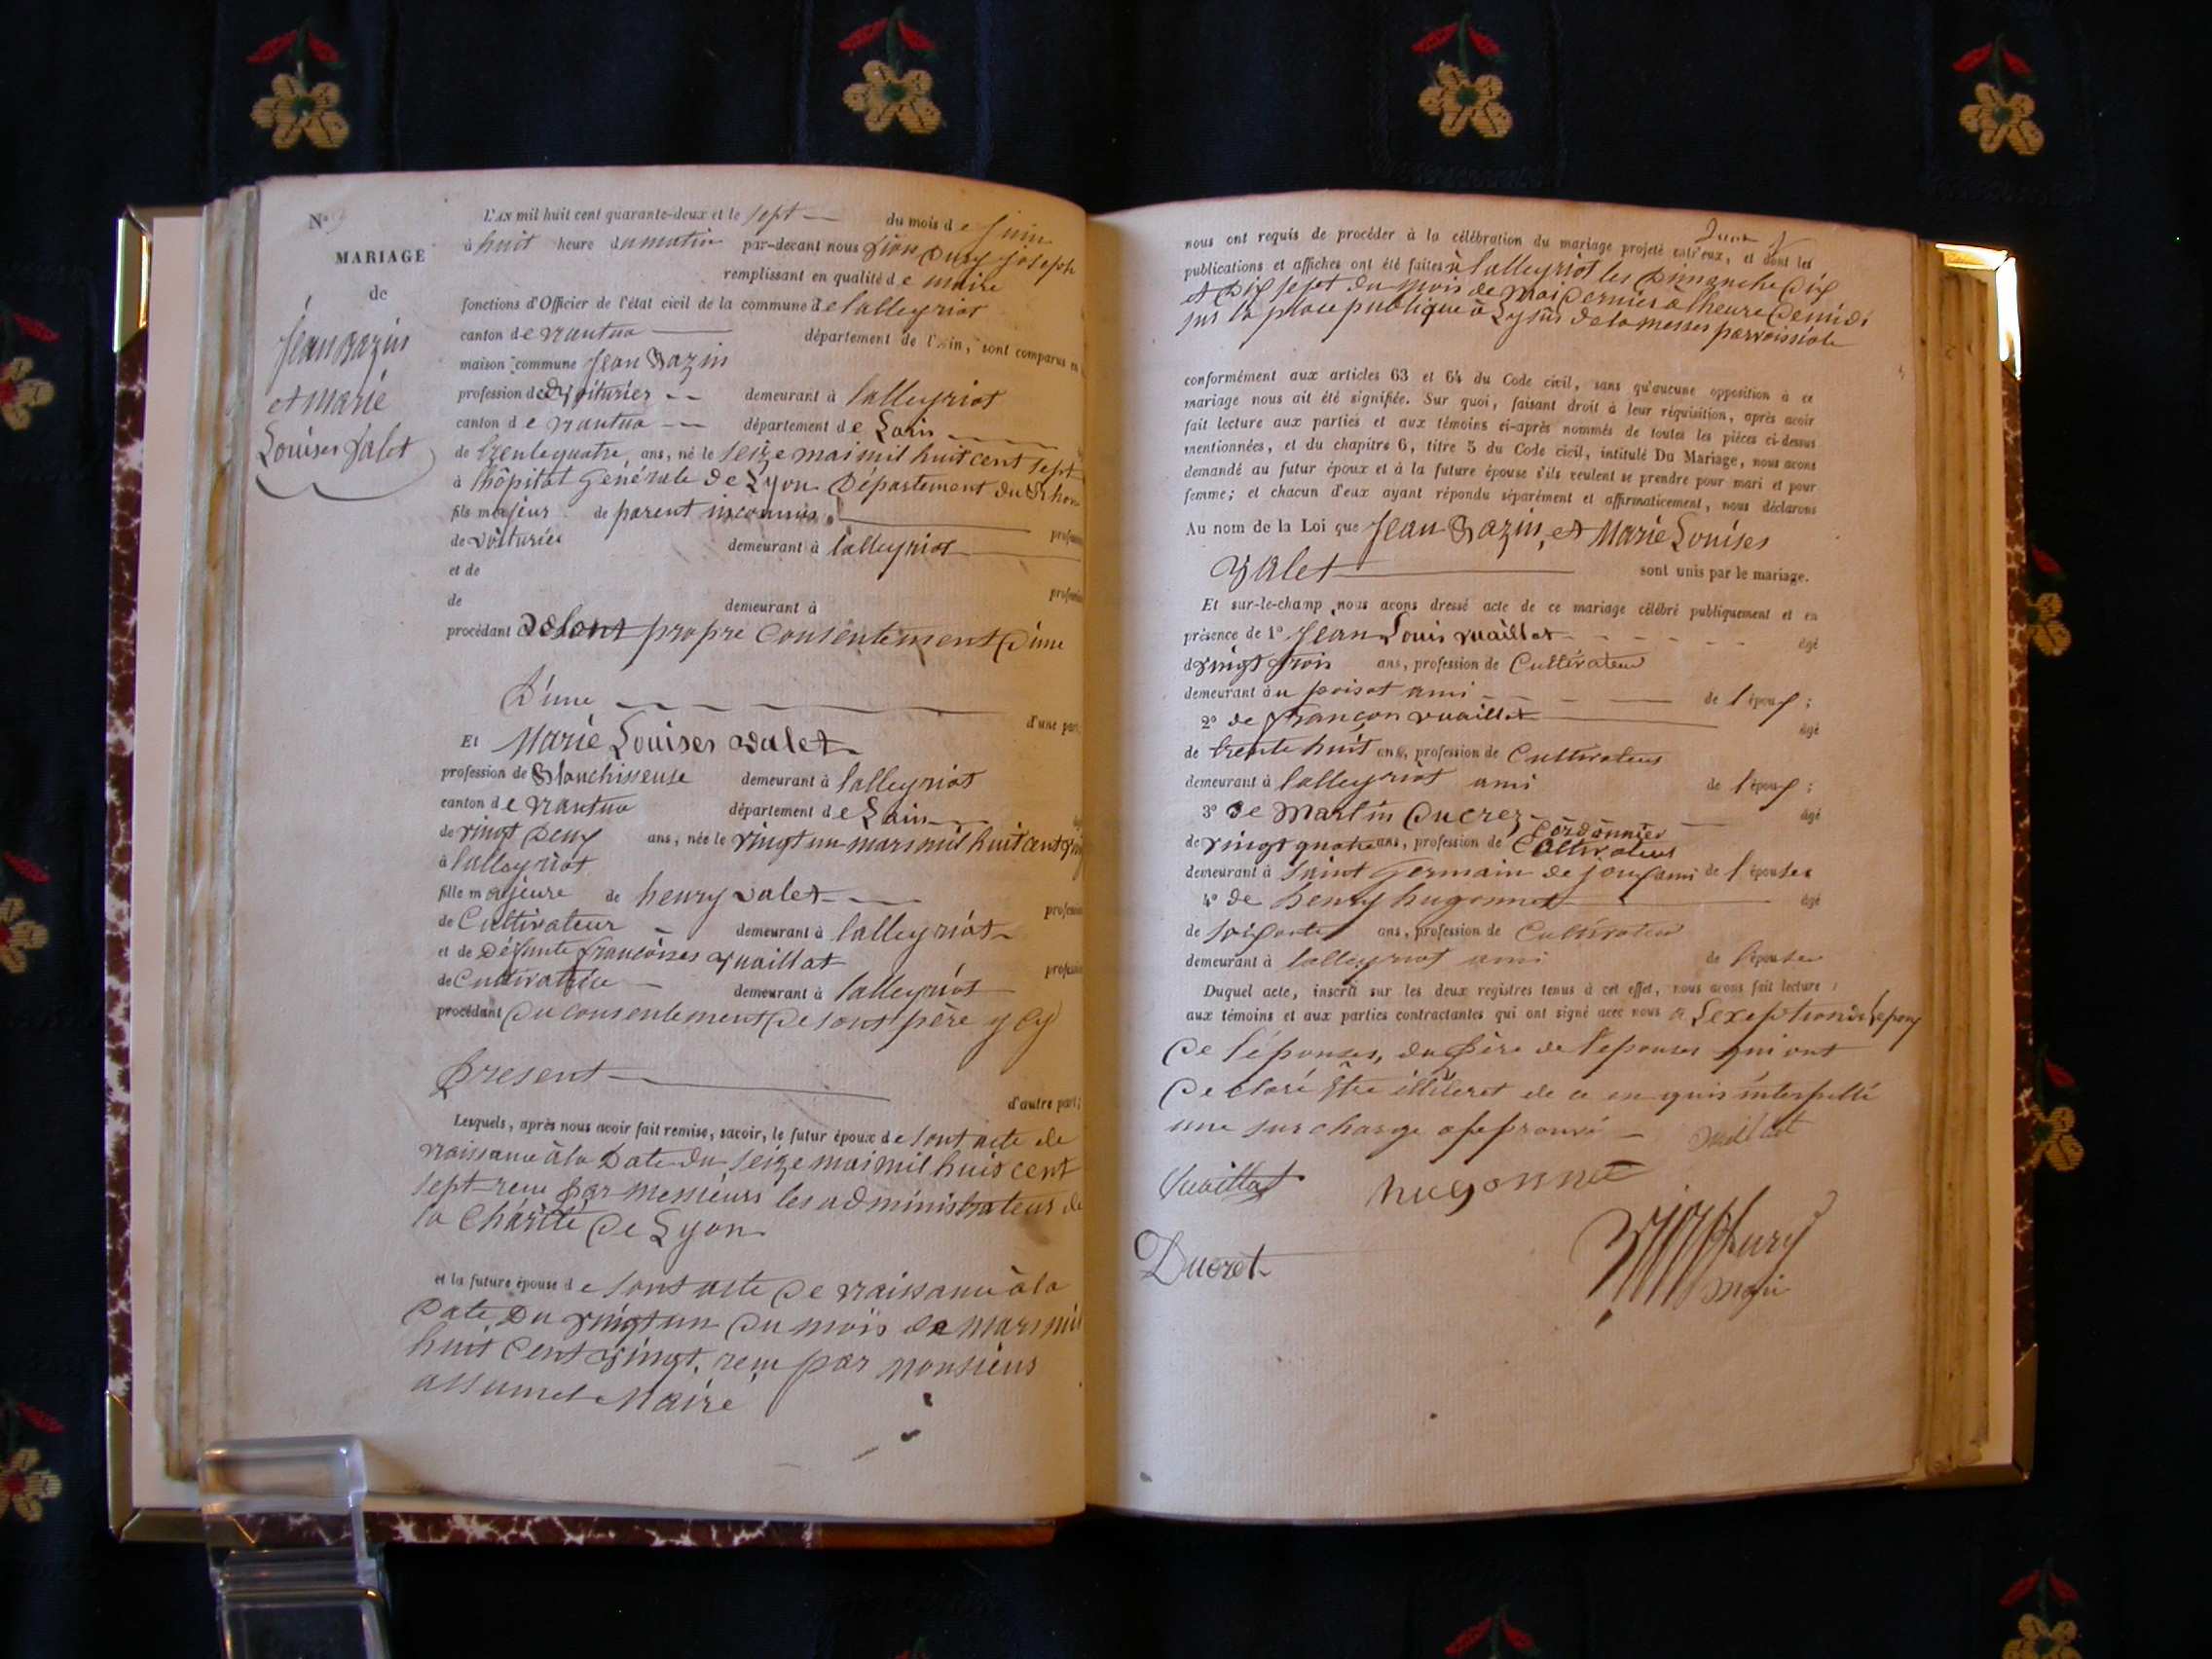 N°
MARIAGE
de
Jean Bazin
et marie
Louises Valet
L'AN mil huit cent quarante-deux et le sept du mois de juin
à huit heure du matin par-devant nous Dury joseph
remplissant en qualité de maire
fonctions d'Officier de l'état civil de la commune de lalleyriat
canton de nantua département de l'Ain, sont comparus en
maison commune Jean Bazin
profession de voiturier demeurant à lalleyriat
canton de nantua département de Lain
de trente quatre ans, né le seize mai mil huit cent sept
à lhôpital Générale de Lyon Département du Rhone
fils majeur de parent inconnus
de voiturier demeurant à lalleyriat
et de
de demeurant à
procédant de sont propre consentement d'une
D'une d'une part,
Et Marie Louises valet
profession de Blanchisseuse demeurant à lalleyriat
canton de nantua département de Lain
de vingt deux ans, née le vingt un mars mil huit cent vingt
à lalleyriat
fille majeure de henry valet
de Cultivateur demeurant à lalleyriat
et de Défunte françoises vuaillat
de Cultivatrice demeurant à lalleyriat
procédant du consentement de sont père y cy
present d'autre part;
Lesquels, après nous avoir fait remise, savoir, le futur époux de sont acte de
naissance à la Date du seize mai mil huis cent
sept reçu par messieurs les administrateurs de
la Charité de Lyon
et la future épouse de sont acte de naissance à la
Date Du vingt un du mois de mars mil
huit cent vingt, reçu par monsieur
assumet Maire
Juin
nous ont requis de procéder à la célébration du mariage projeté entr'eux, et dont les
publications et affiches ont été faites à lalleyriat les Dimanche Dix
et Dix sept du mois de mai dernier a lheure de midi
sur la place publique à Lysus de la messes parroissiale
conformément aux articles 63 et 64 du Code civil, sans qu'aucune opposition à ce
mariage nous ait été signifiée. Sur quoi, faisant droit à leur réquisition, après avoir
fait lecture aux parties et aux témoins ci-après nommés de toutes les pièces ci-dessus
mentionnées, et du chapitre 6, titre 5 du Code civil, intitulé Du Mariage, nous avons
demandé au futur époux et à la future épouse s'ils veulent se prendre pour mari et pour
femme; et chacun d'eux ayant répondu séparément et affirmativement, nous déclarons
Au nom de la Loi que Jean Bazin, et Marie Louises
Valet sont unis par le mariage.
Et sur-le-champ nous avons dressé acte de ce mariage célébré publiquement et en
présence de 1° Jean Louis vuaillat âgé
de vingt trois ans, profession de Cultivateur
demeurant au poisat ami de l'époux;
2° de françon vuaillat âgé
de trente huit ans, profession de Cultivateur
demeurant à lalleyriat ami de l'époux;
3° de Martin Ducrez âgé
Cordonnier
de vingt quatre ans, profession de Cultivateur
demeurant à Saint Germain de joux ami de l'épouses
4° de henry hugonnet âgé
de soixante ans, profession de Cultivateur
demeurant à lalleyriat ami de l'épouse
Duquel acte, inscrit sur les deux registres tenus à cet effet, nous avons fait lecture
aux témoins et aux parties contractantes qui ont signé avec nous a Lexeption de lepoux
De lépouses, du père de lepouses qui ont
Declaré être illiteret de ce en quis interpellé
une surcharge approuvé vuaillat
Vuaillat hugonnet
Ducret Dury
Maire